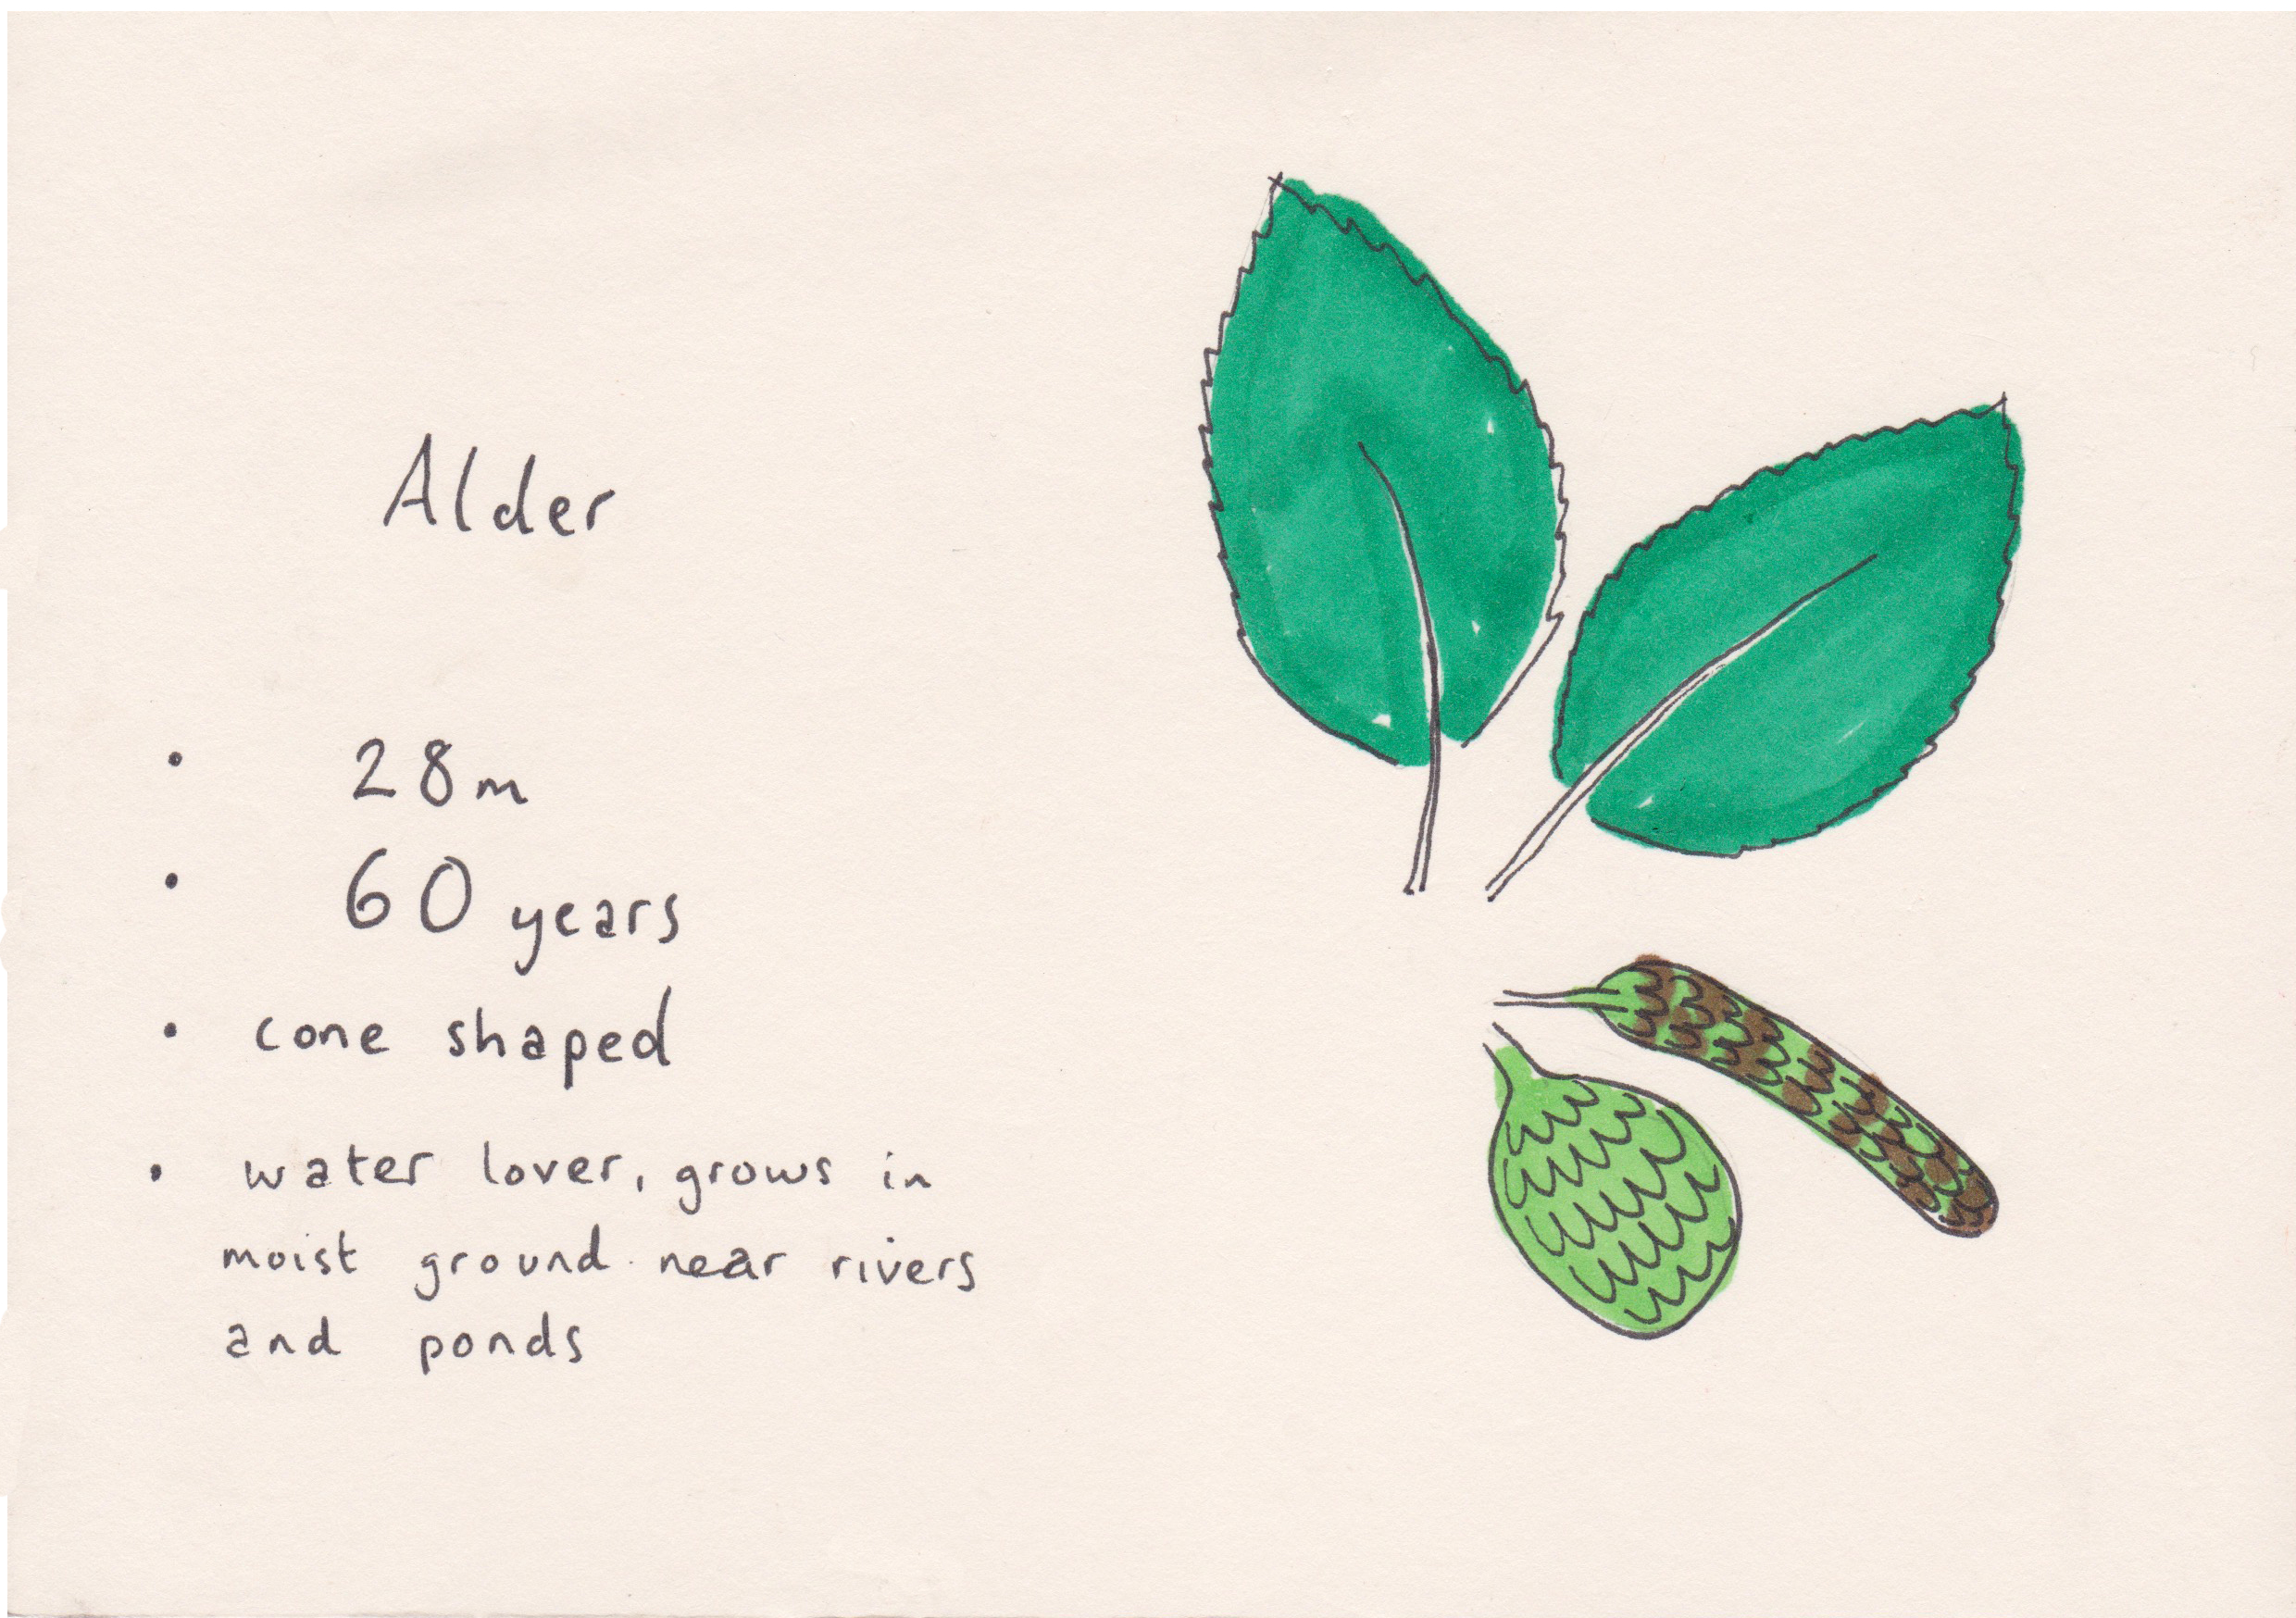 Alder
• 28m
• 60 years
• cone shaped
• water lover, grows in
moist ground near rivers
and ponds